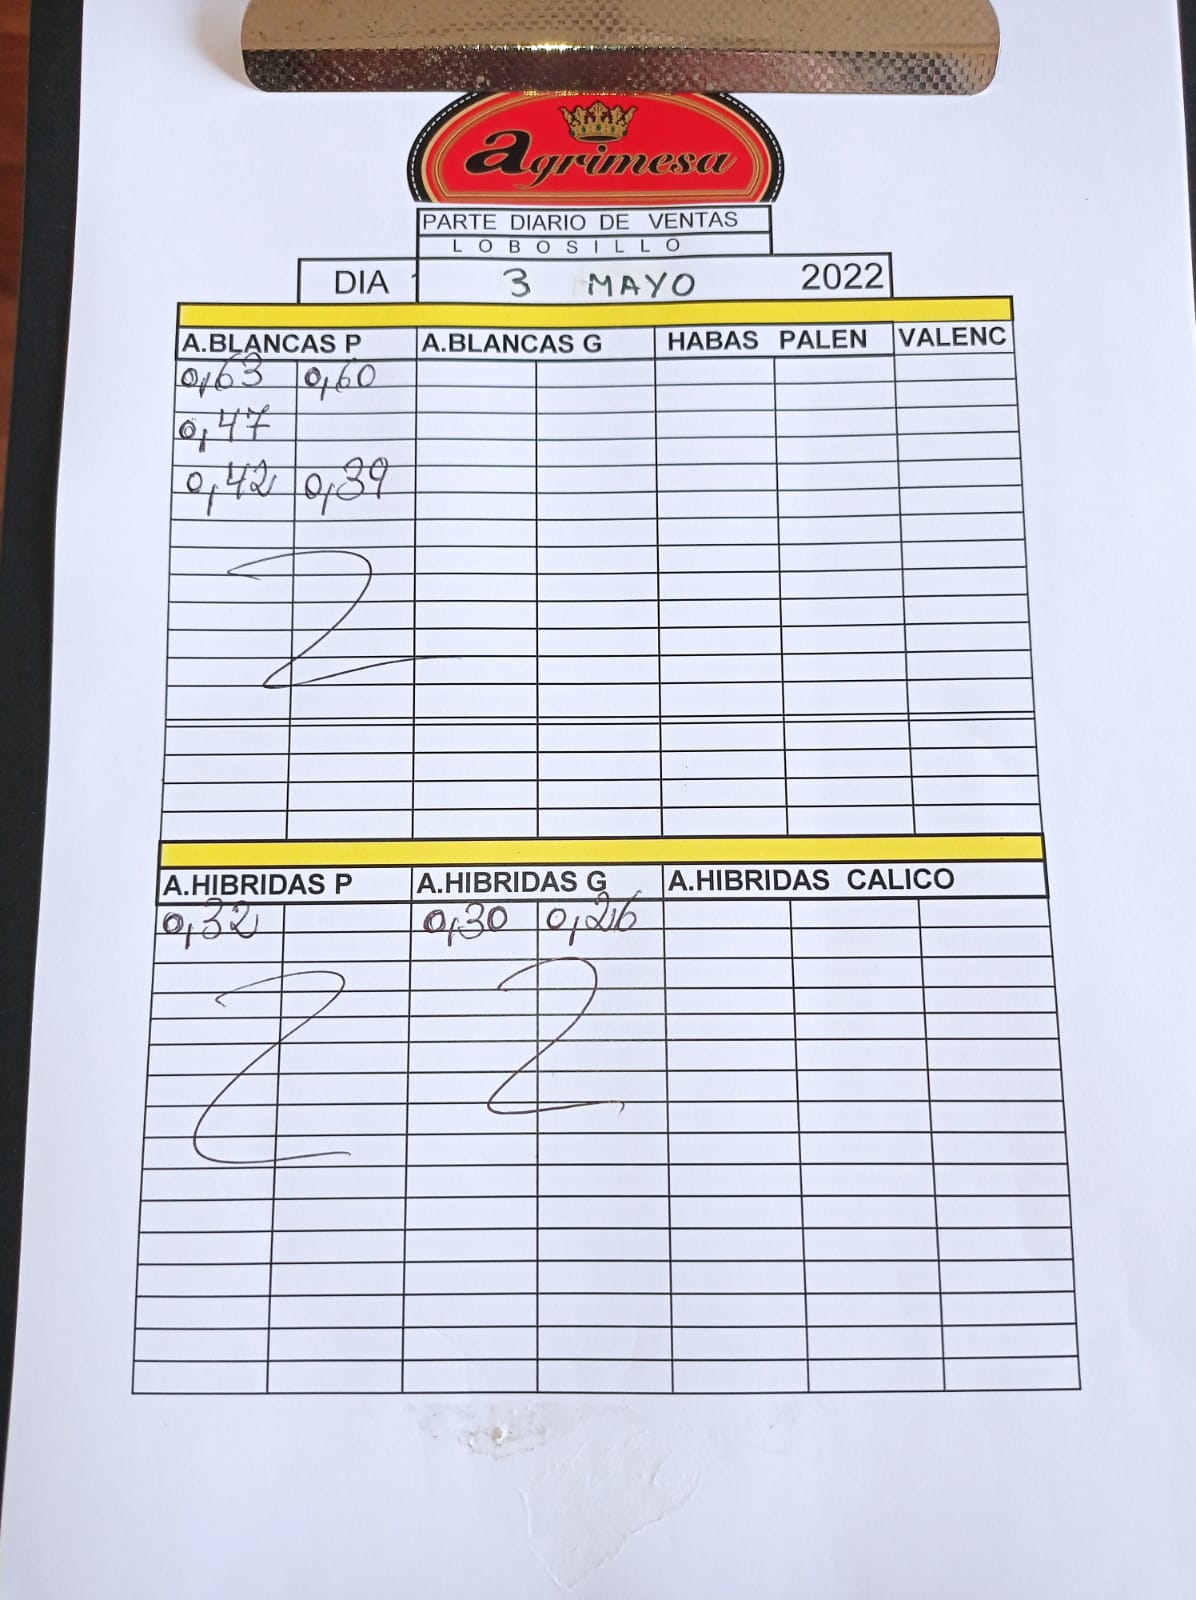 agrimesa
PARTE DIARIO DE VENTAS
LOBOSILLO
DIA 3 MAYO 2022
A.BLANCAS P A.BLANCAS G HABAS PALEN VALENC
0,63 0,60
0,47
0,42 0,39
A.HIBRIDAS P A.HIBRIDAS G A.HIBRIDAS CALICO
0,32 0,30 0,26